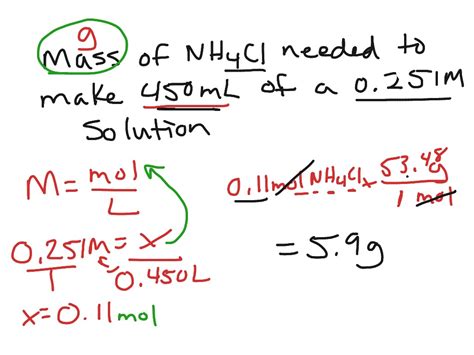 g
Mass of NH4Cl needed to
make 450mL of a 0.251M
Solution
M = mol
L
0.251M = x
1 0.450L
x = 0.11 mol
0.11 mol NH4Cl x 53.48g
1 mol
= 5.9g